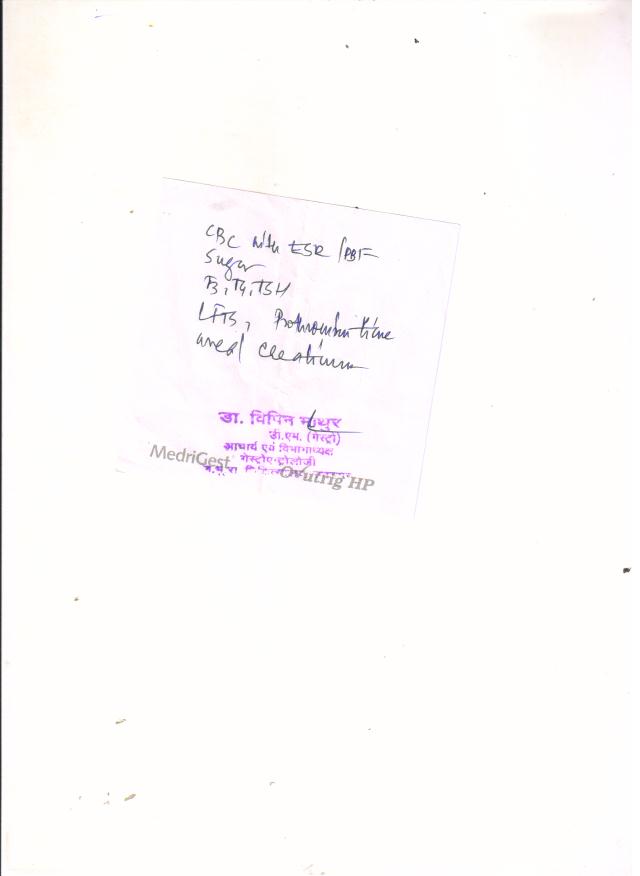 CBC with ESR / PBF
Sugar
T3, T4, TSH
LFTs, Prothrombin time
urea / creatinine
डा. विपिन माथुर
डी.एम. (गेस्ट्रो)
आचार्य एवं विभागाध्यक्ष
गेस्ट्रोएन्ट्रोलोजी
MedriGest
Ovutrig HP